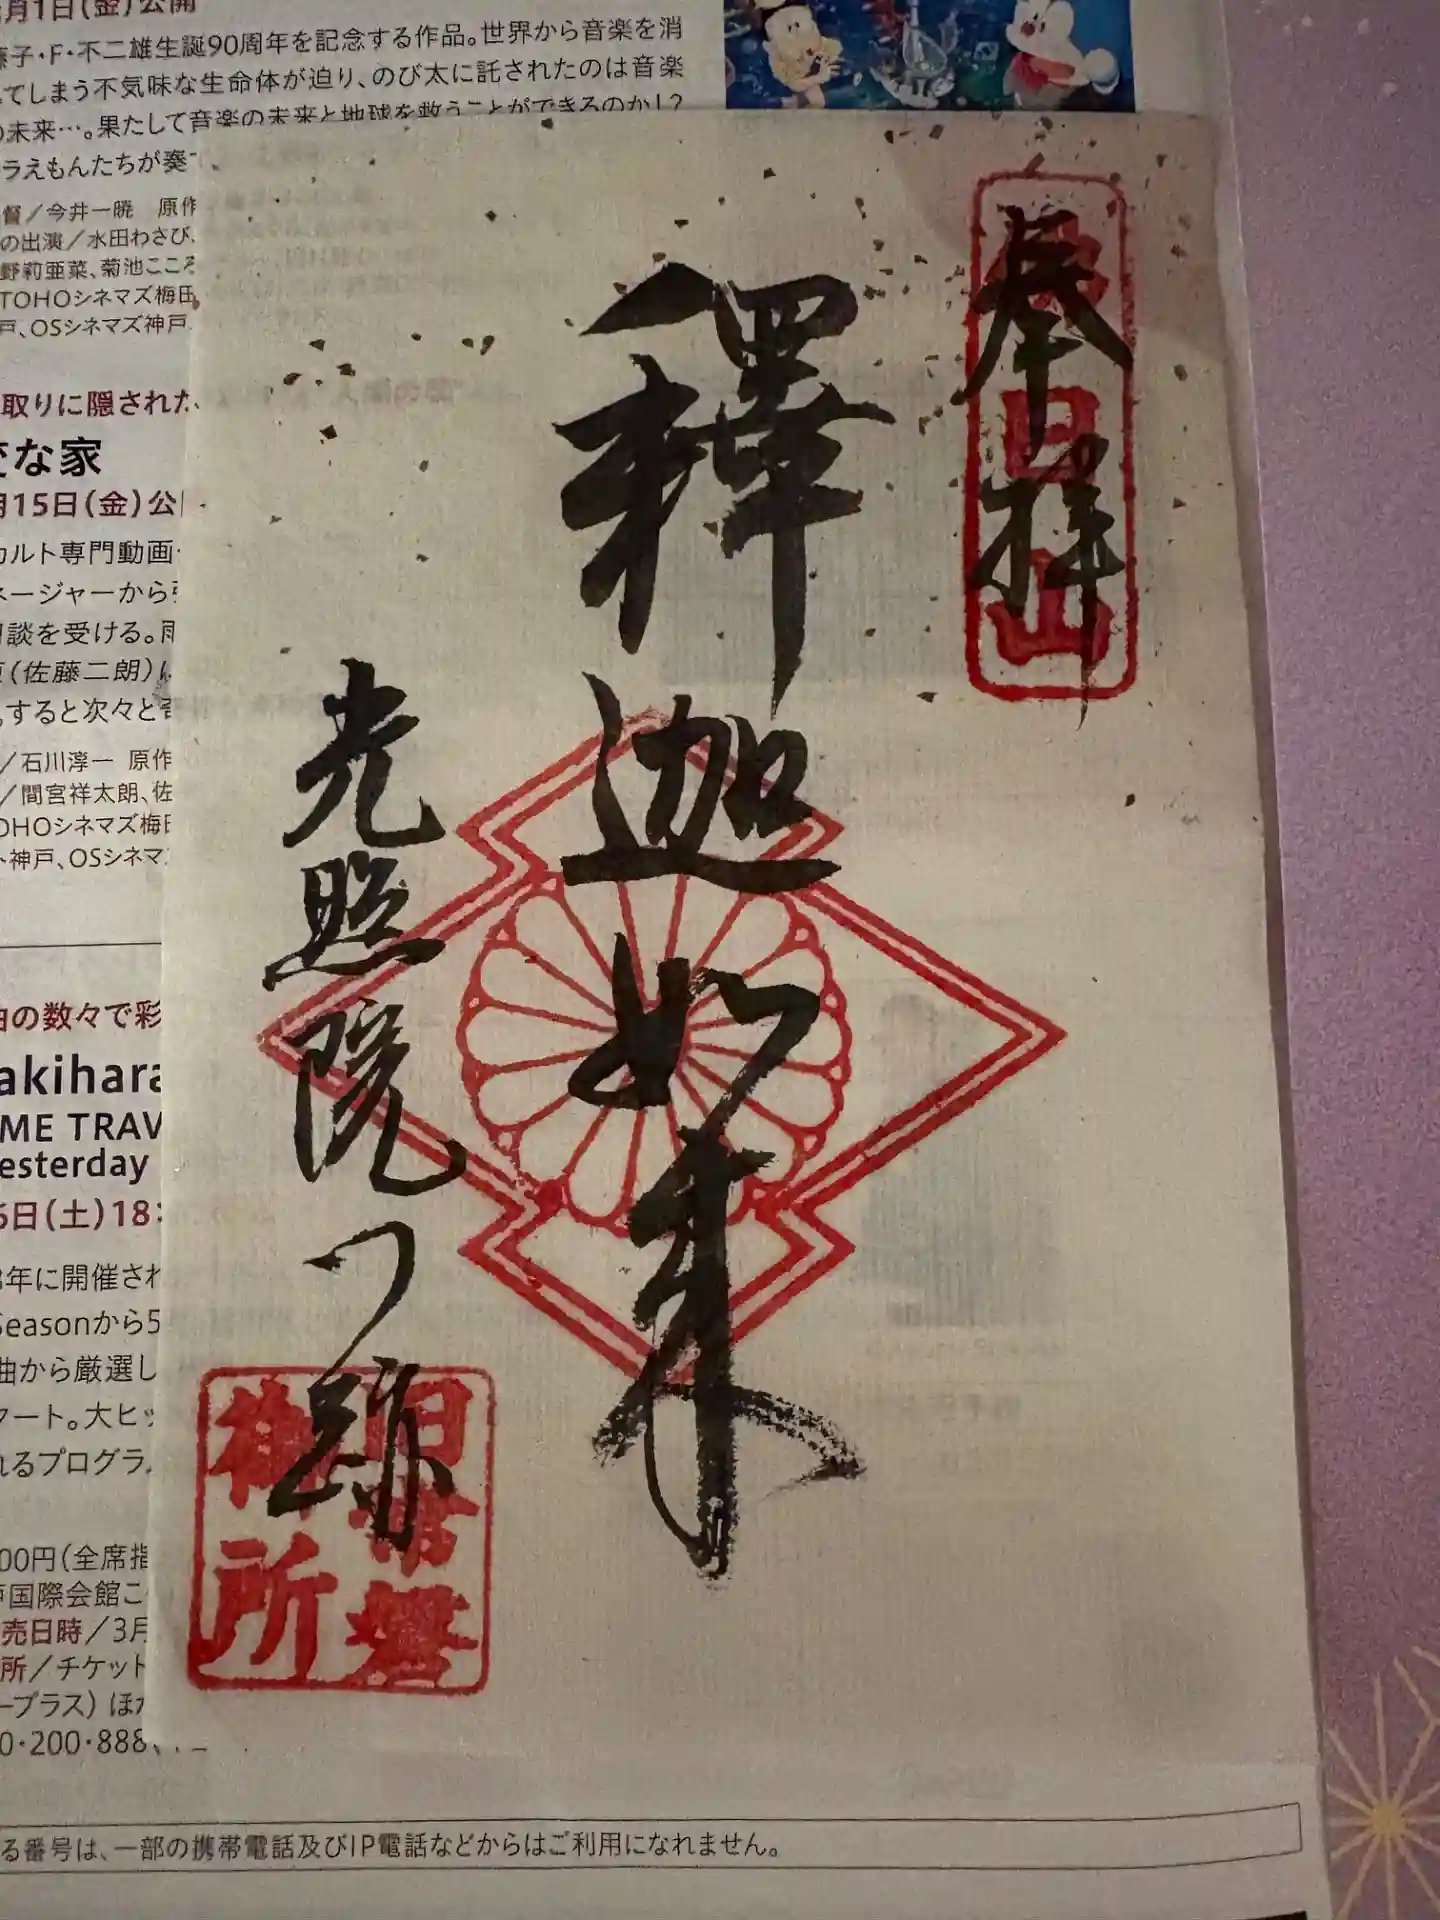 月1日(金)公開
藤子・F・不二雄生誕90周年を記念する作品。世界から音楽を消
してしまう不気味な生命体が迫り、のび太に託されたのは音楽
の未来…。果たして音楽の未来と地球を救うことができるのか!?
ラえもんたちが奏
督/今井一暁 原作
の出演/水田わさび、
野莉亜菜、菊池こころ
TOHOシネマズ梅田
戸、OSシネマズ神戸
取りに隠された
変な家
月15日(金)公
カルト専門動画
ネージャーから
相談を受ける。雨
(佐藤二朗)に
。すると次々と
/石川淳一 原作
/間宮祥太朗、佐
OHOシネマズ梅
ト神戸、OSシネマ
曲の数々で彩
akihara
ME TRAV
esterday
6日(土)18:
年に開催され
Seasonから5
曲から厳選し
アート。大ヒッ
れるプログラ
00円(全席指
戸国際会館こ
売日時/3月
所/チケット
ープラス) ほか
0・200・888、
る番号は、一部の携帯電話及びIP電話などからはご利用になれません。
奉拝
日山
釋迦如来
光照院門跡
旧常磐
御所